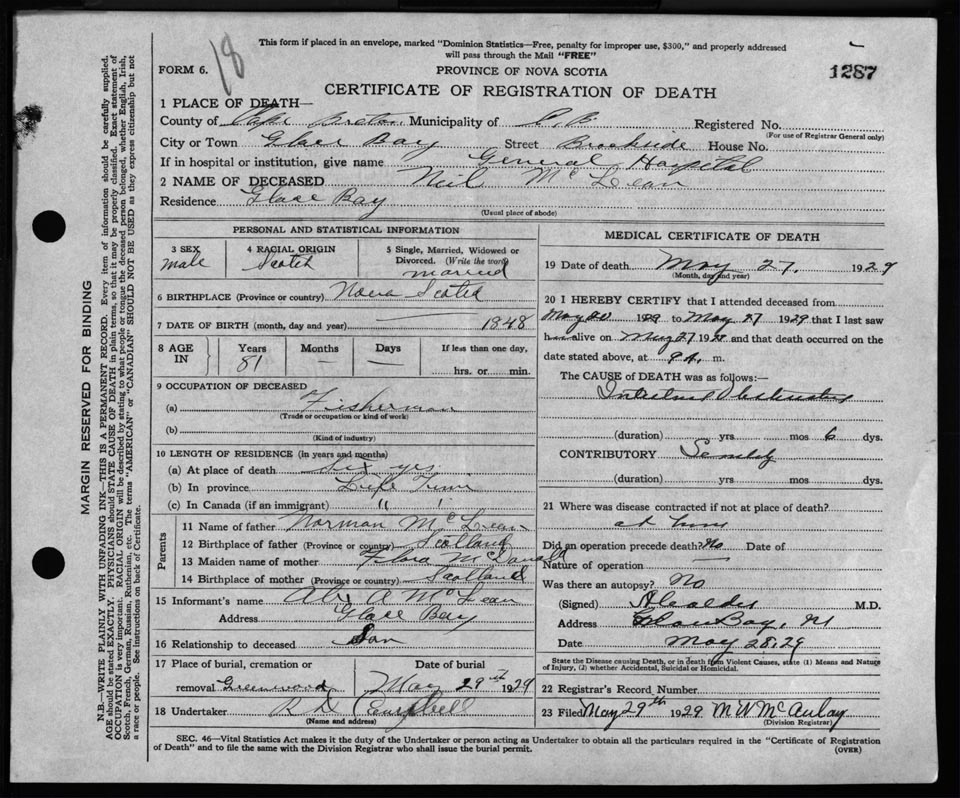 This form if placed in an envelope, marked "Dominion Statistics—Free, penalty for improper use, $300," and properly addressed
will pass through the Mail "FREE"
18
FORM 6.
PROVINCE OF NOVA SCOTIA
1287
CERTIFICATE OF REGISTRATION OF DEATH
1 PLACE OF DEATH—
County of Cape Breton Municipality of C. B. Registered No.
(For use of Registrar General only)
City or Town Glace Bay Street Brookside House No.
If in hospital or institution, give name General Hospital
2 NAME OF DECEASED Neil McLean
Residence Glace Bay
(Usual place of abode)
PERSONAL AND STATISTICAL INFORMATION
3 SEX
male
4 RACIAL ORIGIN
Scotch
5 Single, Married, Widowed or
Divorced. (Write the word)
married
6 BIRTHPLACE (Province or country) Nova Scotia
7 DATE OF BIRTH (month, day and year) — 1848
8 AGE
IN
Years
81
Months
—
Days
—
If less than one day,
hrs. or min.
9 OCCUPATION OF DECEASED
(a) Fisherman
(Trade or occupation or kind of work)
(b)
(Kind of industry)
10 LENGTH OF RESIDENCE (in years and months)
(a) At place of death six yrs
(b) In province Life Time
(c) In Canada (if an immigrant) " "
Parents
11 Name of father Norman McLean
12 Birthplace of father (Province or country) Scotland
13 Maiden name of mother Flora McDonald
14 Birthplace of mother (Province or country) Scotland
15 Informant's name Alex A McLean
Address Glace Bay
16 Relationship to deceased Son
17 Place of burial, cremation or
removal Greenwood
Date of burial
May 29th 1929
18 Undertaker R D Campbell
(Name and address)
MEDICAL CERTIFICATE OF DEATH
19 Date of death May 27, 1929
(Month, day and year)
20 I HEREBY CERTIFY that I attended deceased from
May 20 1929 to May 27 1929 that I last saw
him alive on May 27 1929 and that death occurred on the
date stated above, at 9 A. m.
The CAUSE of DEATH was as follows:—
Intestinal Obstruction
(duration) yrs mos 6 dys.
CONTRIBUTORY Senility
(duration) yrs mos dys.
21 Where was disease contracted if not at place of death?
at home
Did an operation precede death? No Date of
Nature of operation —
Was there an autopsy? No
(Signed) M.D.
Address Glace Bay,
Date May 28, 29
State the Disease causing Death, or in death from Violent Causes, state (1) Means and Nature
of Injury, (2) whether Accidental, Suicidal or Homicidal.
22 Registrar's Record Number
23 Filed May 29th 1929 M W McAulay
(Division Registrar)
SEC. 46—Vital Statistics Act makes it the duty of the Undertaker or person acting as Undertaker to obtain all the particulars required in the "Certificate of Registration
of Death" and to file the same with the Division Registrar who shall issue the burial permit.
(OVER)
MARGIN RESERVED FOR BINDING
N.B.—WRITE PLAINLY WITH UNFADING INK—THIS IS A PERMANENT RECORD. Every item of information should be carefully supplied.
AGE should be stated EXACTLY. PHYSICIANS should STATE CAUSE OF DEATH in plain terms, so that it may be properly classified. Exact statement of
OCCUPATION is very important. RACIAL ORIGIN will be described by stating to what people or tongue the deceased person belonged, whether English, Irish,
Scotch, French, German, Russian, Ruthenian, etc. The terms "AMERICAN" or "CANADIAN" SHOULD NOT BE USED as they express citizenship but not
a race or people. See instructions on back of Certificate.